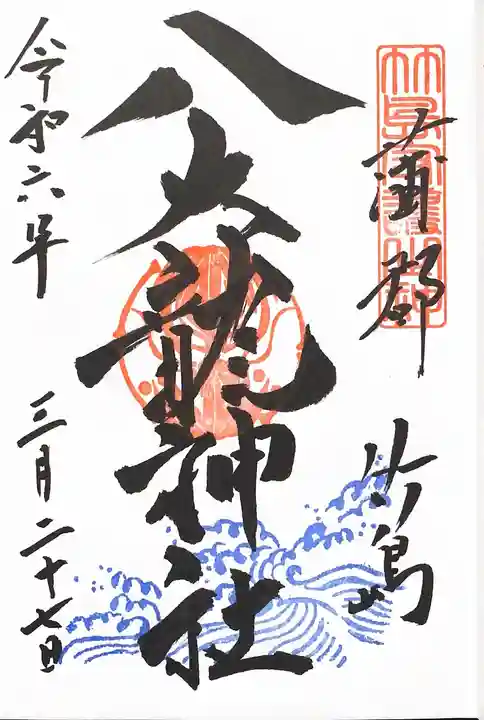 蒲郡
竹島
八大龍神社
令和六年
三月二十七日